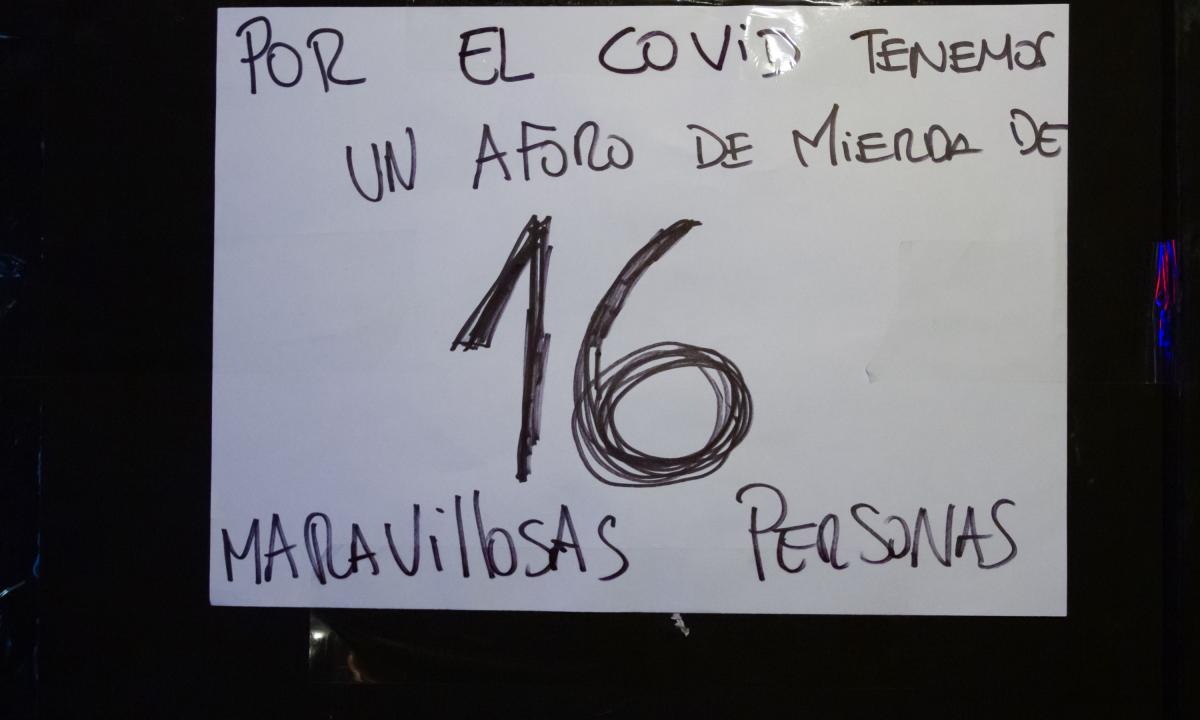 POR EL COVID TENEMOS
UN AFORO DE MIERDA DE
16
MARAVILLOSAS PERSONAS